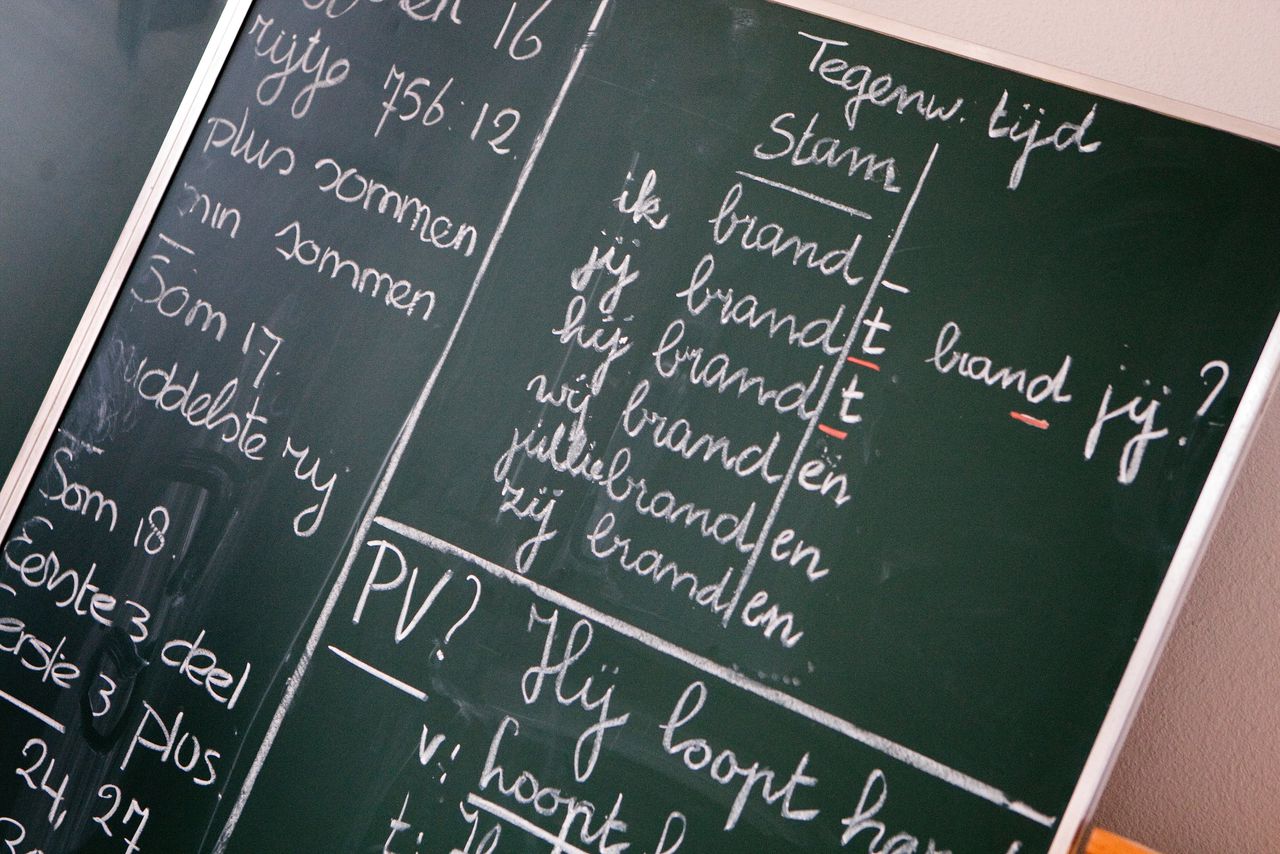 16
rijtje 756:12.
plus sommen
min sommen
Som 17.
middelste rij
Som 18.
Eerste 3 deel
Eerste 3 plus
24, 27
Tegenw. tijd
Stam
ik brand -
jij brand t brand jij?
hij brand t
wij brand en
jullie brand en
zij brand en
PV? Hij loopt har
v: hoopt h
t: H